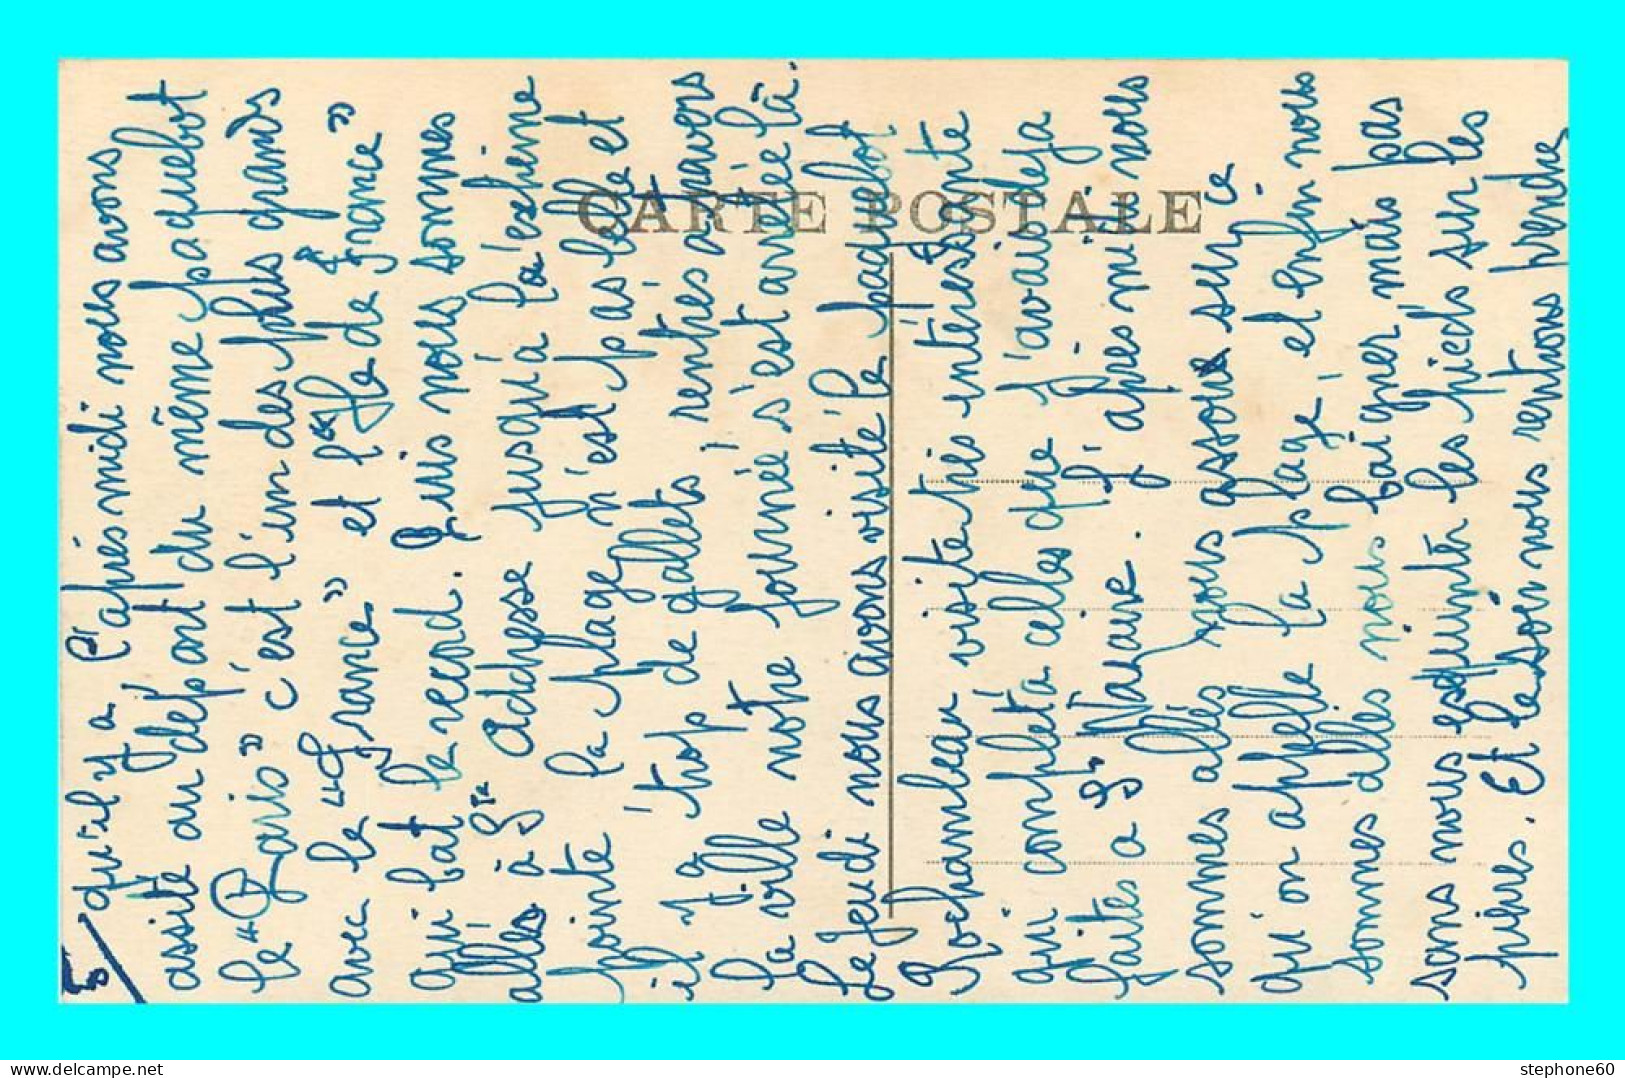 5/ qu'il y a l'après midi nous avons
assité au départ du même paquebot
le "Paris" c'est l'un des plus grands
avec le "France" et l'"Ile de France"
qui bat le record. Puis nous sommes
allés à Ste Addresse jusqu'à l'a'eshême
pointe la plage n'est pas belle et
il y a trop de gallets, rentrés à travers
la ville notre journée s'est arrêtée là.
Le jeudi nous avons visité le paquebot
Rochambeau visite très intéressante
qui compléta celles que j'avais déjà
faites à St Nazaire. L'après midi nous
sommes allés nous assoir sur ce
qu'on appelle la plage, et enfin nous
sommes allés nous baigner mais pas
sans nous esquinter les pieds sur les
pierres. Et le soir nous rentrons prendre
CARTE POSTALE
stephone60